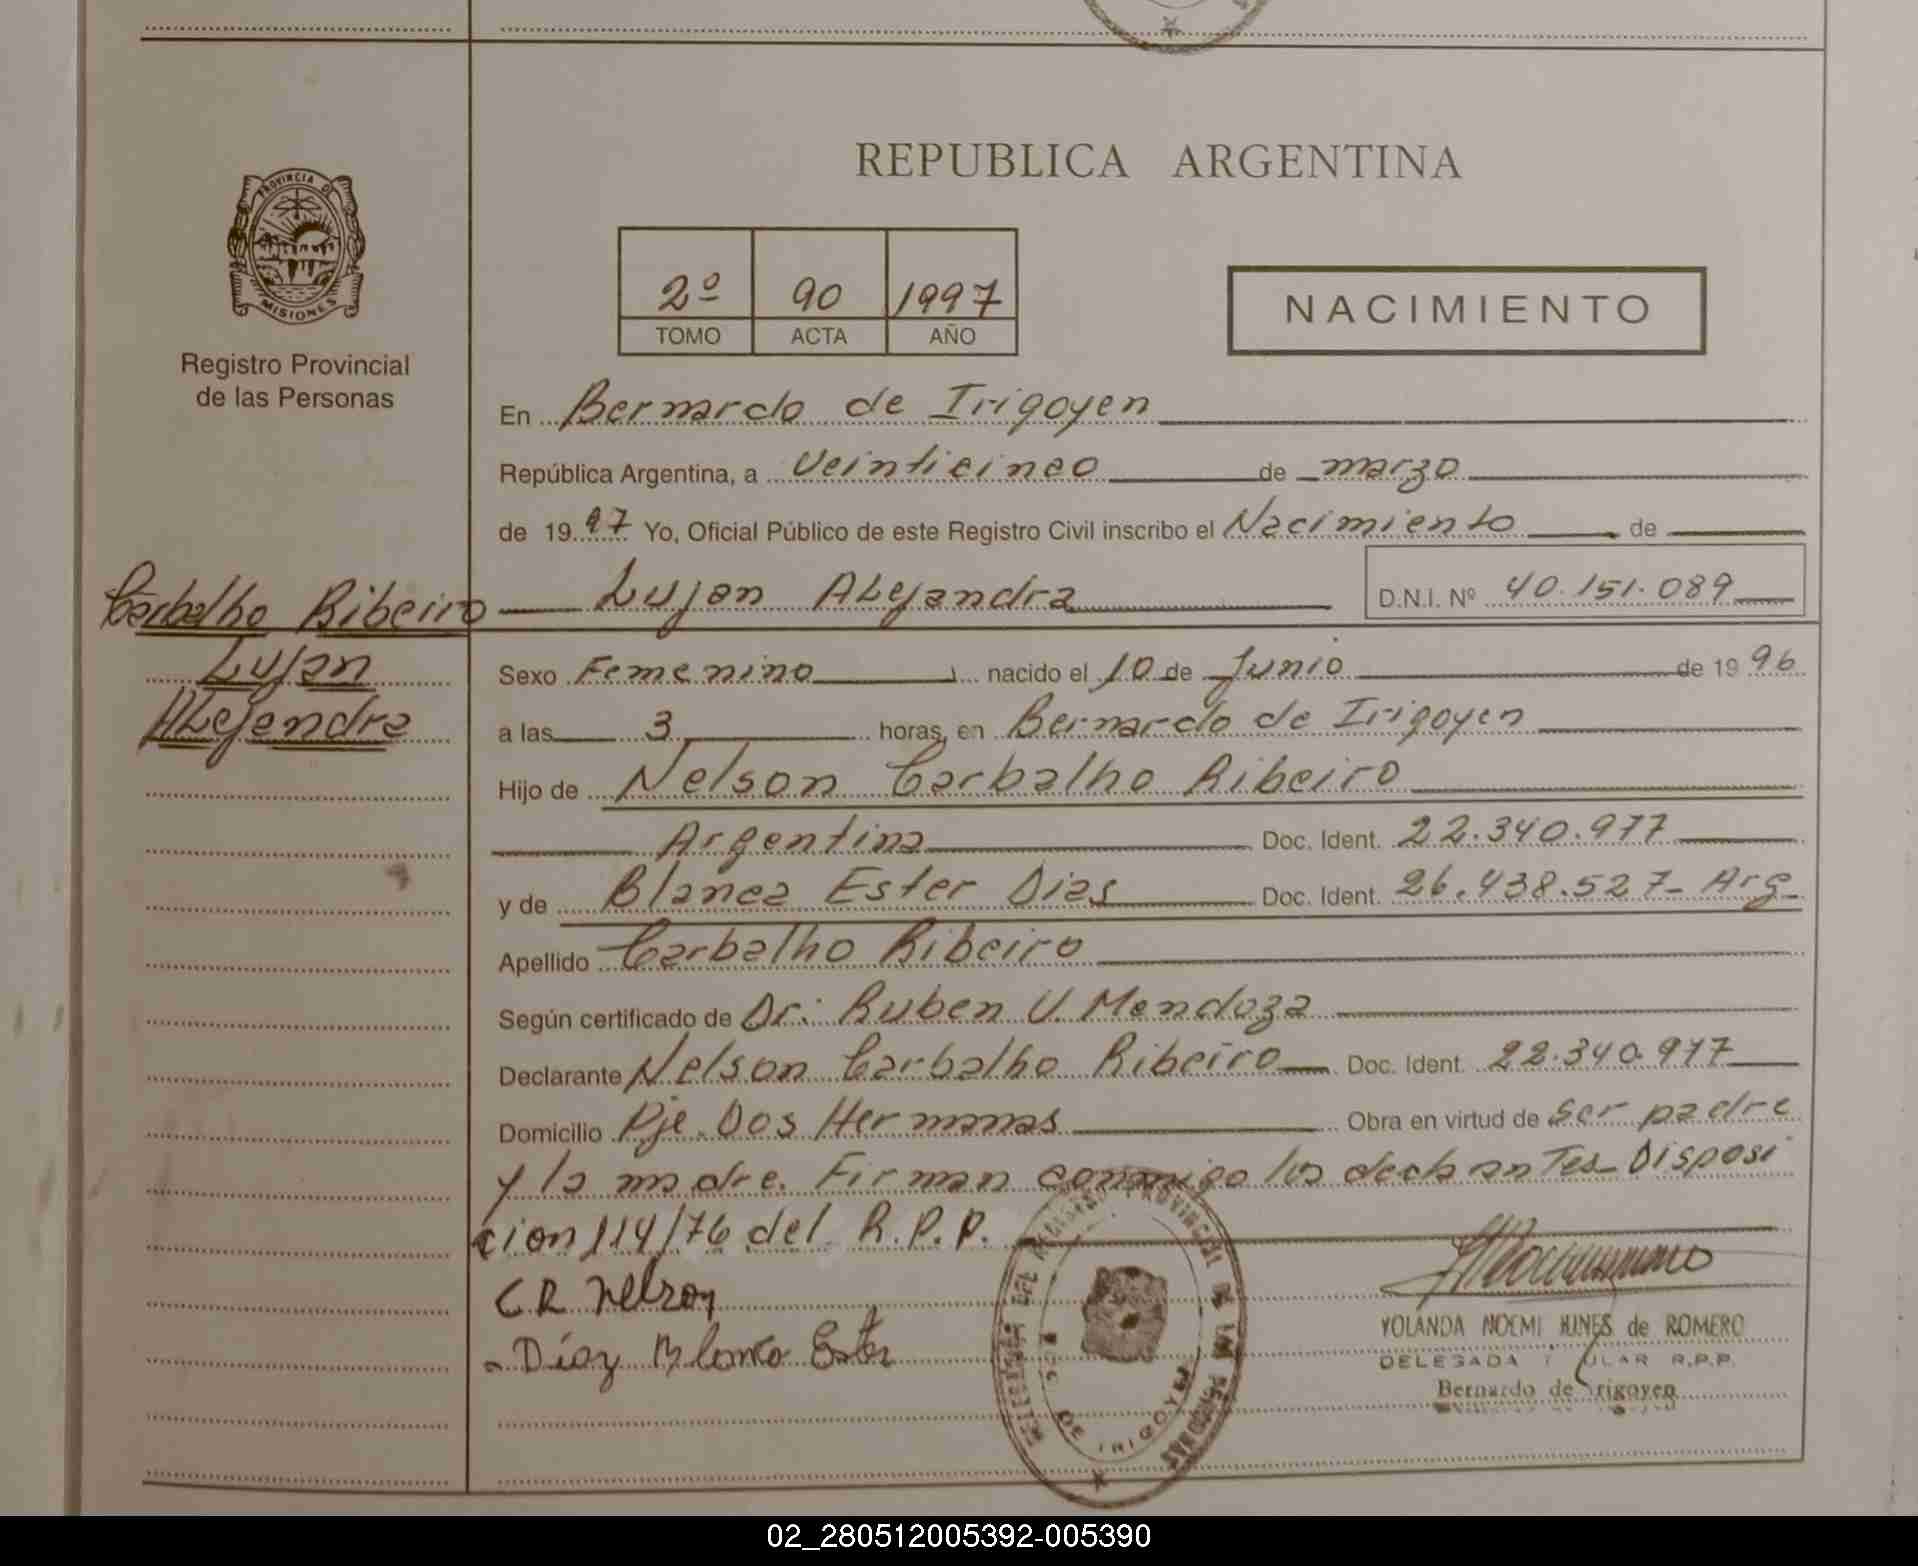 REPUBLICA ARGENTINA
PROVINCIA D
MISIONES
Registro Provincial
de las Personas
2º 90 1997
TOMO ACTA AÑO
NACIMIENTO
En Bernardo de Irigoyen
República Argentina, a Veinticinco de marzo
de 1997 Yo, Oficial Público de este Registro Civil inscribo el Nacimiento de
Carbalho Ribeiro
Lujan
Alejandra
Lujan Alejandra D.N.I. Nº 40.151.089
Sexo Femenino nacido el 10 de Junio de 1996
a las 3 horas, en Bernardo de Irigoyen
Hijo de Nelson Carbalho Ribeiro
Argentina Doc. Ident. 22.340.977
y de Blanca Ester Dias Doc. Ident. 26.438.527- Arg-
Apellido Carbalho Ribeiro
Según certificado de Dr: Ruben V. Mendoza
Declarante Nelson Carbalho Ribeiro Doc. Ident. 22.340.977
Domicilio Pje. Dos Hermanas Obra en virtud de ser padre
y la madre. Firman conmigo los Disposi
cion 114/76 del R.P.P.
CR Nelson
Díaz Blanca Ester
DE IRIGOYEN
YOLANDA NOEMI de ROMERO
DELEGADA R.P.P.
Bernardo de Irigoyen
02_280512005392-005390